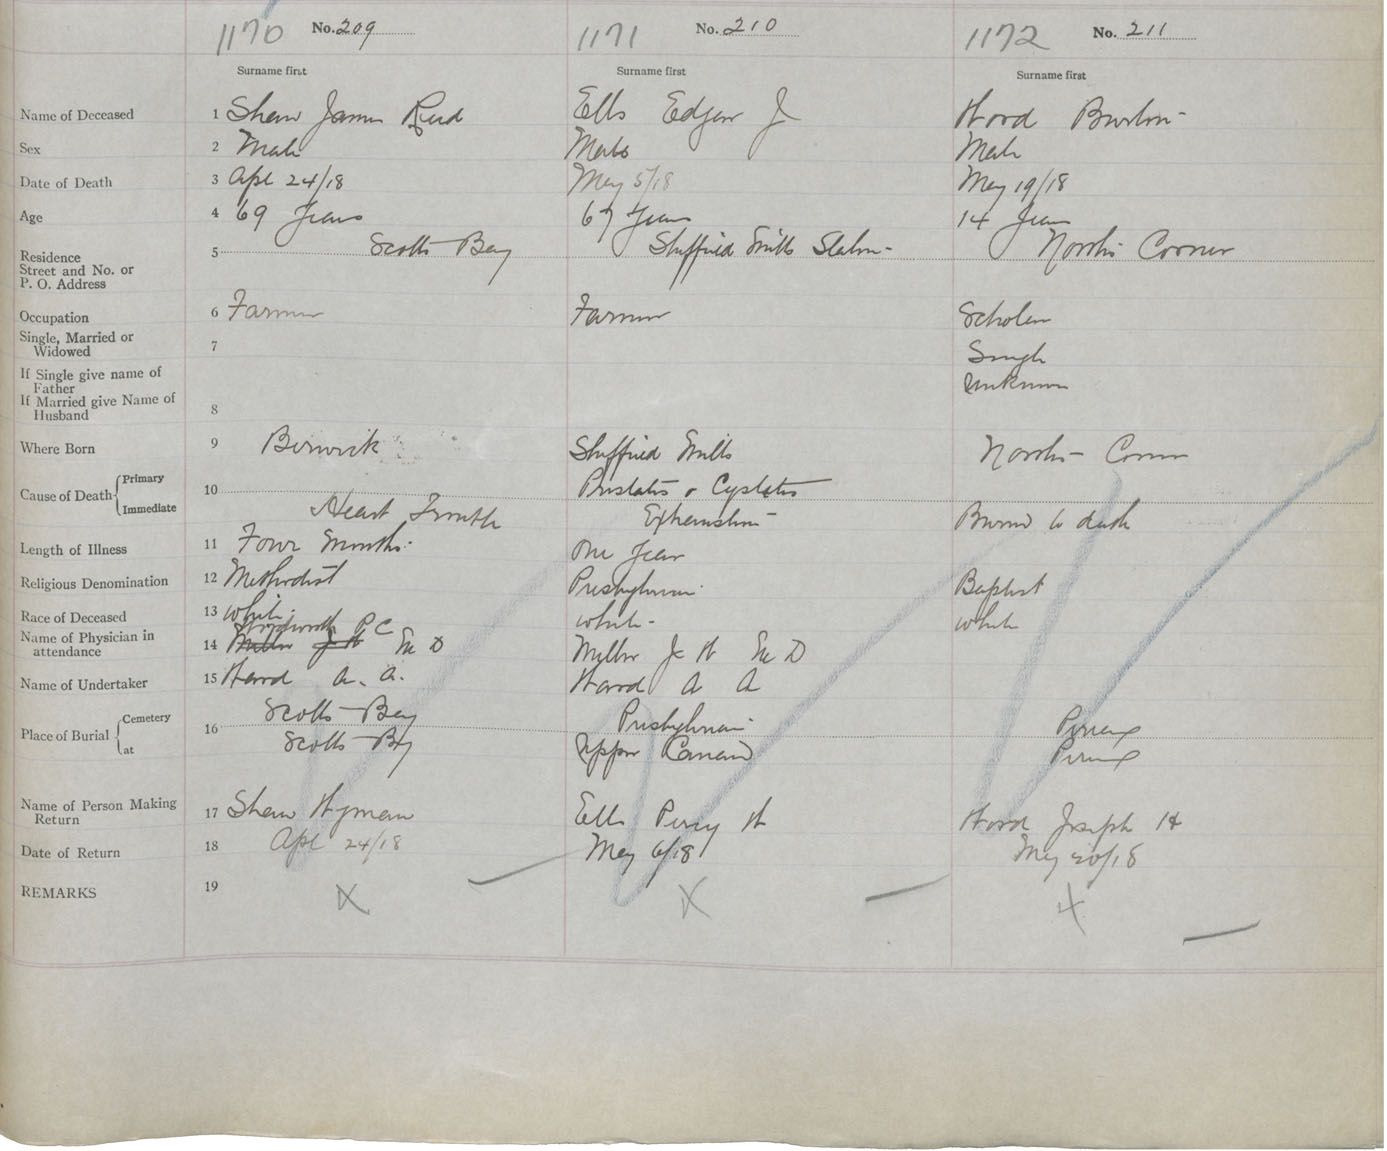 1170 No. 209 1171 No. 210 1172 No. 211
Surname first Surname first Surname first
Name of Deceased 1 Shaw James Reid Ells Edgar J Hood Burton
Sex 2 Male Male Male
Date of Death 3 Apl 24/18 May 5/18 May 19/18
Age 4 69 Years 67 Years 14 Years
Residence 5 Scotts Bay Sheffield Mills Station Norths Corner
Street and No. or
P. O. Address
Occupation 6 Farmer Farmer Scholar
Single, Married or 7 Single
Widowed
If Single give name of Unknown
Father
If Married give Name of 8
Husband
Where Born 9 Berwick Sheffield Mills Norths Corner
Cause of Death Primary 10 & Cystitis
Immediate Heart Trouble Exhaustion Burned to death
Length of Illness 11 Four Months One Year
Religious Denomination 12 Methodist Presbyterian Baptist
Race of Deceased 13 White White White
Name of Physician in 14 P C M D Miller J H M D
attendance
Name of Undertaker 15 A. A. A A
Place of Burial Cemetery 16 Scotts Bay Presbyterian Pereau
at Scotts Bay Upper Canard Pereau
Name of Person Making 17 Shaw Hyman Ells Percy H Hood Joseph H
Return
Date of Return 18 Apl 24/18 May 6/18 May 20/18
REMARKS 19 X X X